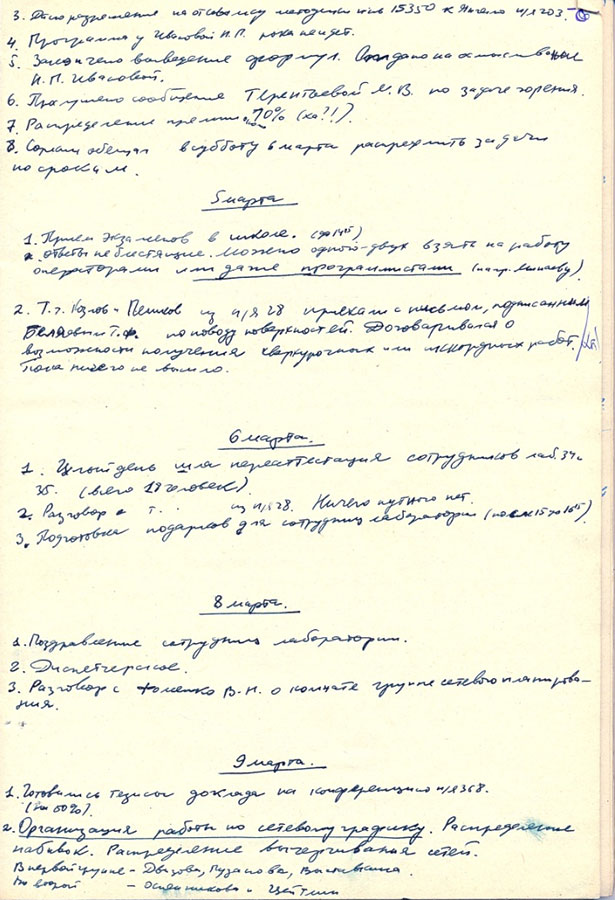 3. Дано разрешение на отсылку методики 15350 к п/я 203.
4. Программа у Ивасовой Н.П. пока не идет.
5. Закончено выведение формул. Отдано на осмысливание
Н.П. Ивасовой.
6. Получено сообщение Терентьевой М.В. по задаче горения.
7. Распределение премии. 70% (ха?!).
8. обещал в субботу 6 марта распределить задачи
по срокам.
5 марта
1. Прием экзаменов в школе. (до 14⁰⁵)
Ответы не блестящие. Можно одного-двух взять на работу
операторами или даже программистами (напр. Минаеву).
2. Т.т. Козлов и Пешков из п/я 28 приехали с письмом, подписанным
Беляевым Т.Ф. по поводу поверхностей. Договаривался о
возможности получения сверхурочных или аккордных работ.
Пока ничего не вышло.
6 марта.
1. Целый день шла переаттестация сотрудников лаб. 34 и
35. (всего 18 человек).
2. Разговор с т. из п/я 28. Ничего путного нет.
3. Подготовка подарков для сотрудниц лаборатории (после 15 до 16⁰⁵)
8 марта.
1. Поздравление сотрудниц лаборатории.
2. Диспетчерское.
3. Разговор с Фоменко В.Н. о комнате группе сетевого планирова-
ния.
9 марта.
1. Готовились тезисы доклада на конференцию п/я 368.
(на 50%).
2. Организация работы по сетевому графику. Распределение
набивок. Распределение вычерчивания сетей.
В первой группе - Рузанова,
Во второй - и Цейтлин